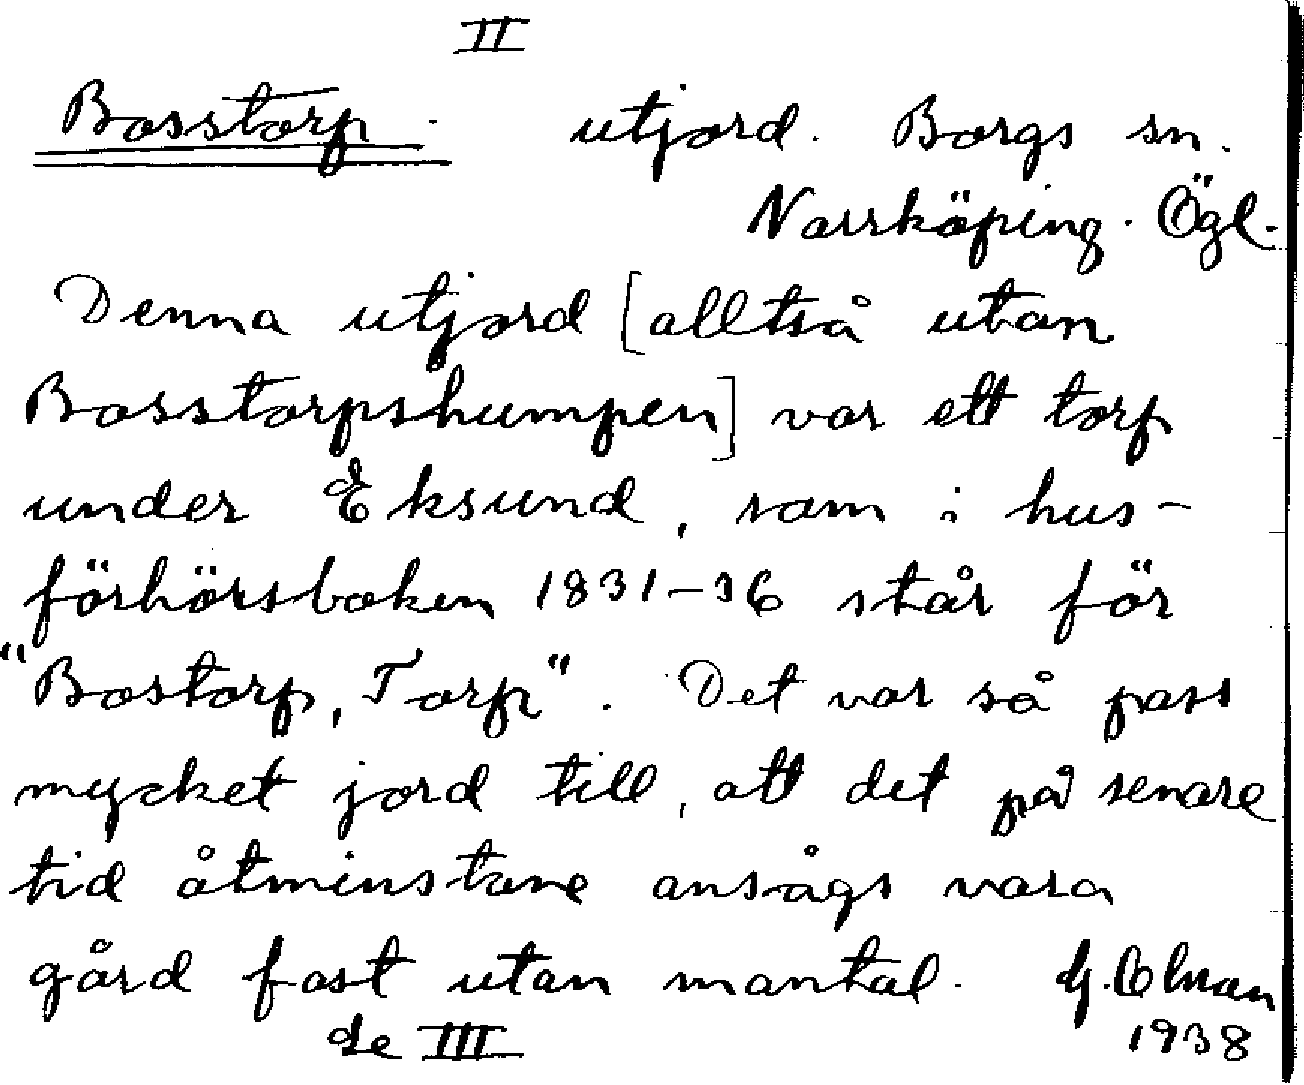 II
Bosstorp. utjord. Borgs sn.
Norrköping. Ögl.
Denna utjord [alltså utan
Bosstorpshumpen] var ett torp
under Eksund, som i hus-
förhörsboken 1831-36 står för
"Bostorp, Torp". Det var så pass
mycket jord till, att det på senare
tid åtminstone ansågs vara
gård fast utan mantal.
Se III 1938